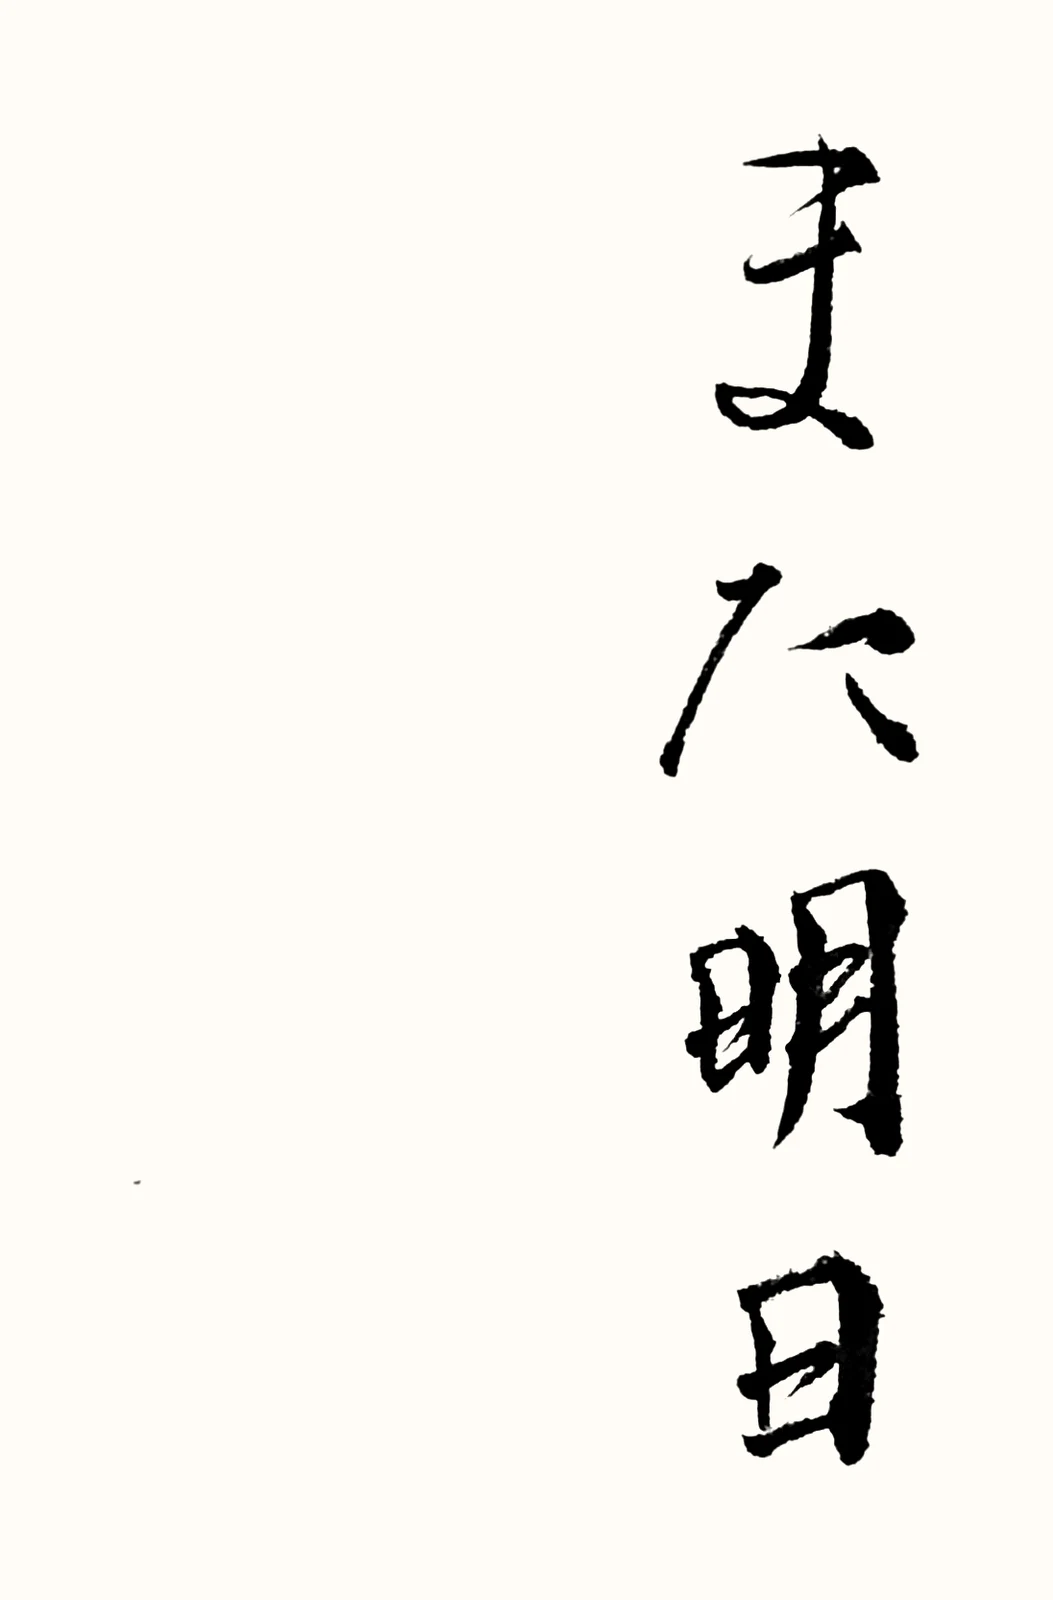 また明日